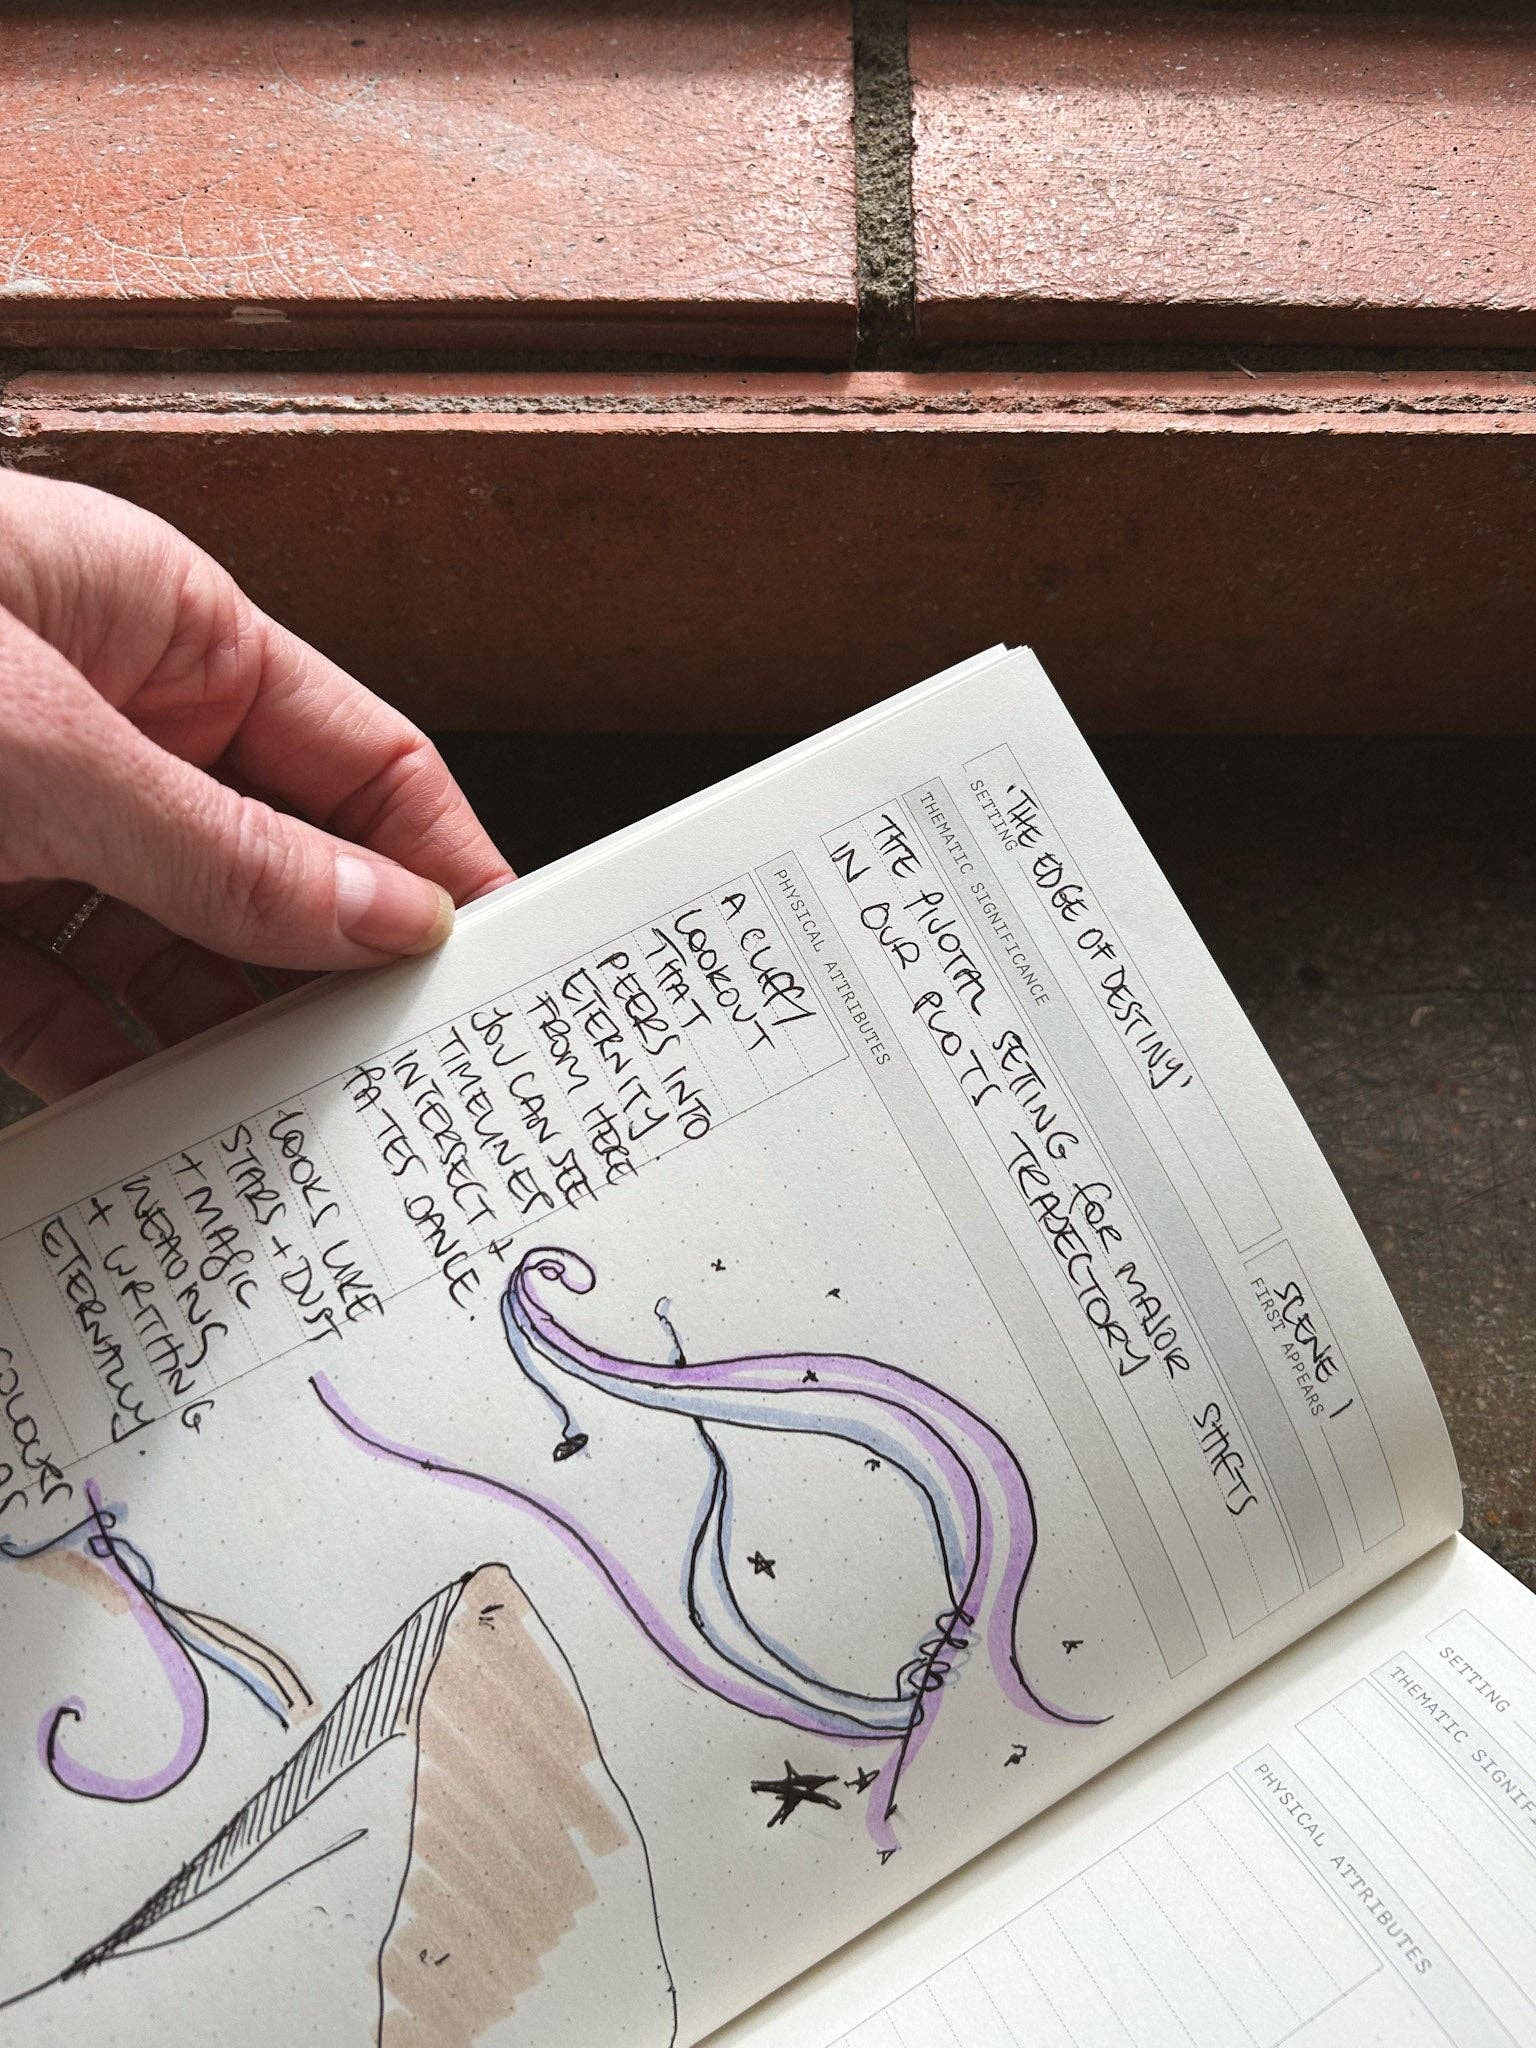 'THE EDGE OF DESTINY'
SETTING
SCENE 1
FIRST APPEARS
THEMATIC SIGNIFICANCE
THE PIVOTAL SETTING FOR MAJOR SHIFTS
IN OUR PLOTS TRAJECTORY
PHYSICAL ATTRIBUTES
A CLIFF
LOOKOUT
THAT
PEERS INTO
ETERNITY.
FROM HERE
YOU CAN SEE
TIMELINES
INTERSECT +
FATES DANCE.
LOOKS LIKE
STARS + DUST
+ MAGIC
WEAVING
+ WRITHING
ETERNALLY.
COLOURS
SETTING
THEMATIC
PHYSICAL ATTRIBUTES